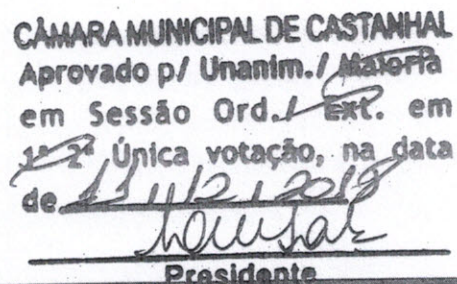 CÂMARA MUNICIPAL DE CASTANHAL
Aprovado p/ Unanim./ Maioria
em Sessão Ord./ Ext. em
1ª 2ª Única votação, na data
de 11/12/2018
Presidente